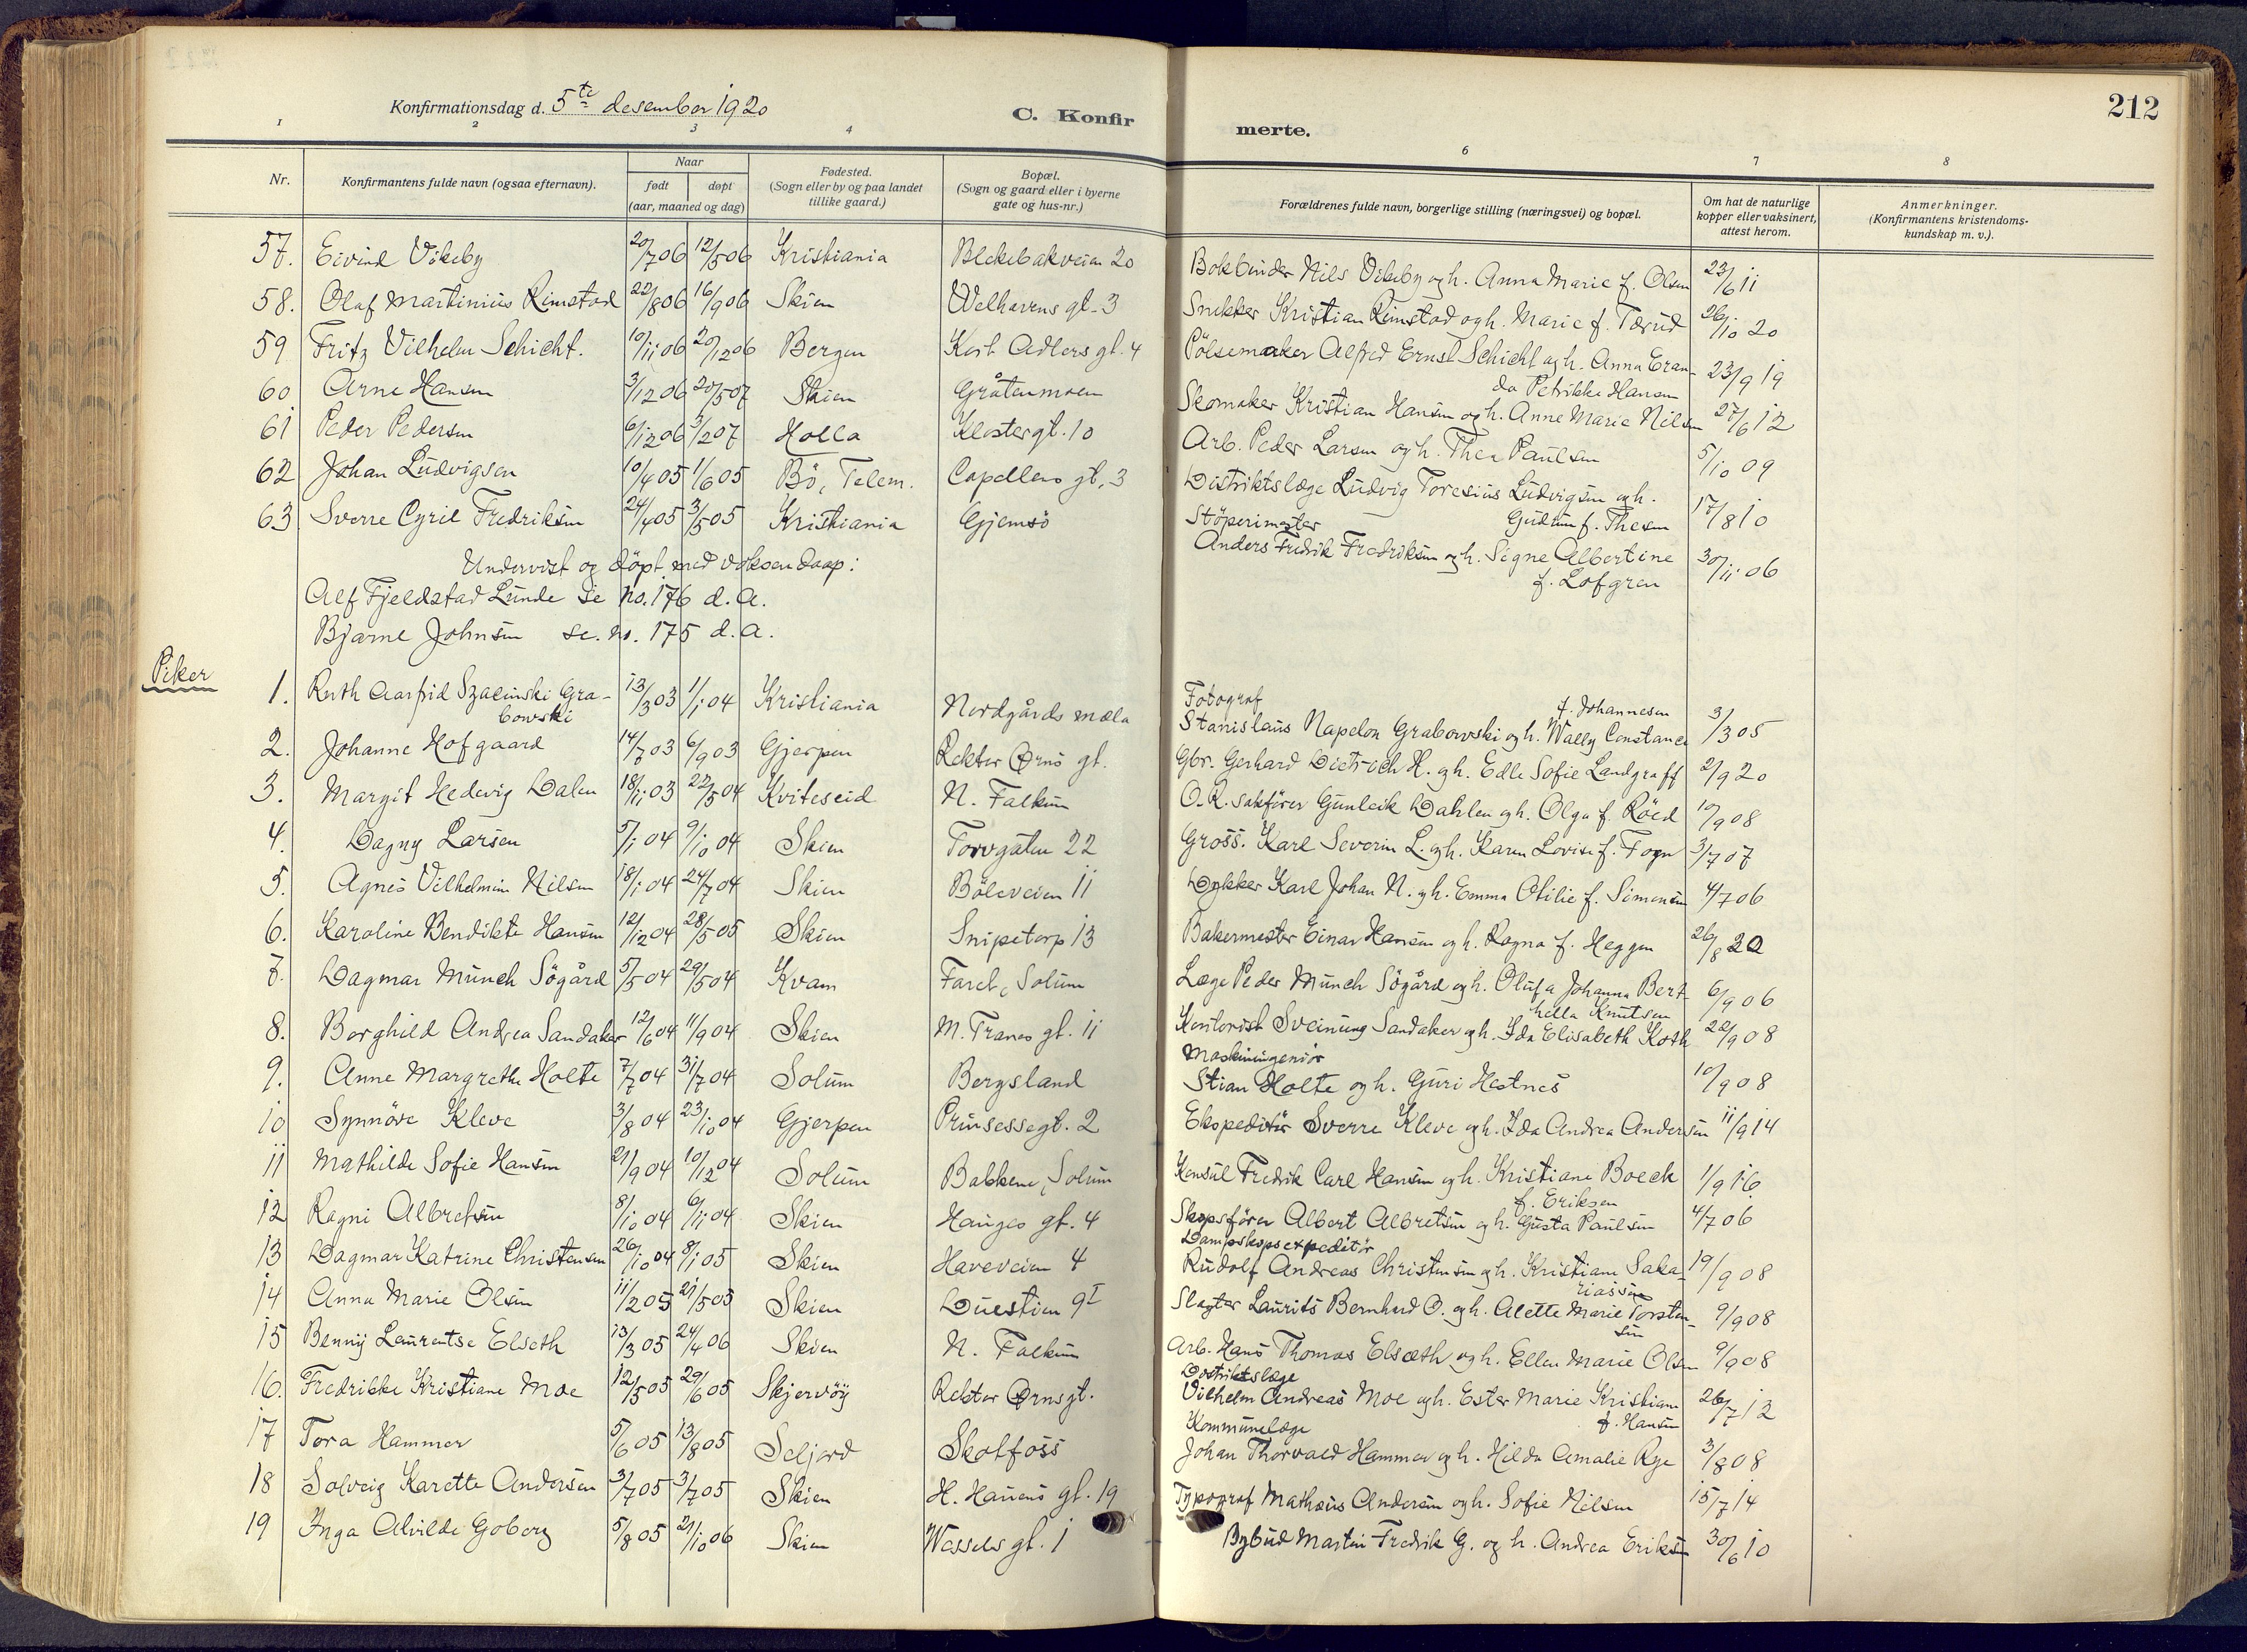 212
Konfirmationsdag d. 5te desember 1920
C. Konfirmerte.
1 2 3 4 6 7 8
Nr.
Konfirmantens fulde navn (ogsaa efternavn).
Naar
født døpt
(aar, maaned og dag)
Fødested.
(Sogn eller by og paa landet
tillike gaard.)
Bopæl.
(Sogn og gaard eller i byerne
gate og hus-nr.)
Forældrenes fulde navn, borgerlige stilling (næringsvei) og bopæl.
Om hat de naturlige
kopper eller vaksinert,
attest herom.
Anmerkninger.
(Konfirmantens kristendoms-
kundskap m. v.).
57. Eivind Vikeby 20/7 06 12/5 06 Kristiania Blekebakveien 20 Bokbinder Nils Vikeby og h. Anna Marie f. Olsen 23/6 11
58. Olaf Martinius Rimstad 22/8 06 16/9 06 Skien Welhavens gt. 3 Snekker Kristian Rimstad og h. Marie f. Tærud 26/10 20
59 Fritz Vilhelm Schicht. 10/11 06 20/12 06 Bergen Kort Adlers gt. 4 Pölsemaker Alfred Ernst Schicht og h. Anna Eran-
da Petrikke Hansen 23/9 19
60 Arne Hansen 3/12 06 20/5 07 Skien Gråtenmoen Skomaker Kristian Hansen og h. Anne Marie Nilsen 27/6 12
61 Peder Pedersen 6/12 06 3/2 07 Holla Klostergt. 10 Arb. Peder Larsen og h. Thea Paulsen 5/10 09
62 Johan Ludvigsen 10/4 05 1/6 05 Bö, Telem. Capellens gt. 3 Distriktslæge Ludvig Toresius Ludvigsen og h.
Gudrun f. Thesen 17/8 10
63 Sverre Cyril Fredriksen 24/4 05 3/5 05 Kristiania Gjemsö Stöperimester
Anders Fredrik Fredriksen og h. Signe Albertine
f. Lofgren 30/11 06
Undervist og döpt med voksendaap:
Alf Fjeldstad Lunde se no. 176 d. A.
Bjarne Johnsen se. no. 175 d. A.
Piker
1. Ruth Aasfrid Szacinski Gra-
bowski 13/3 03 1/1 04 Kristiania Nordgårds mæla Fotograf
f. Johannesen
Stanislaus Napelon Grabowski og h. Wally Constance 3/3 05
2. Johanne Hofgaard 14/7 03 6/9 03 Gjerpen Rektor Ørns gt. Gbr. Gerhard Dietrich H. og h. Edle Sofie Landgraff 2/9 20
3. Margit Hedevig Dalen 18/11 03 22/5 04 Kviteseid N. Falkum O.R. sakförer Gunleik Dahlen og h. Olga f. Röed 10/9 08
4. Dagny Larsen 5/1 04 9/10 04 Skien Torvgaten 22 Gross. Karl Severin L. og h. Karen Lovise f. Fogn 3/7 07
5. Agnes Vilhelmine Nilsen 18/1 04 24/7 04 Skien Böleveien 11 Dykker Karl Johan N. og h. Emma Otilie f. Simonsen 4/7 06
6. Karoline Bendikte Hansen 12/12 04 28/5 05 Skien Snipetorp 13 Bakermester Einar Hansen og h. Ragna f. Heggen 26/8 20
7. Dagmar Munch Sögård 5/5 04 29/5 04 Kvam Faret, Solum Læge Peder Munch Sögård og h. Olufa Johanna Bert-
hella Knutsen 6/9 06
8. Borghild Andrea Sandaker 12/6 04 11/9 04 Skien M. Tranes gt. 11 Kontorist Sveinung Sandaker og h. Ida Elisabeth Koth 22/9 08
9. Anne Margrethe Holte 7/7 04 31/7 04 Solum Bergsland Maskiningeniör
Stian Holte og h. Guri Hestnes 10/9 08
10 Synnöve Kleve 3/8 04 23/10 04 Gjerpen Prinsessegt. 2 Ekspeditör Sverre Kleve og h. Ida Andrea Andersen 11/9 14
11 Mathilde Sofie Hansen 21/9 04 10/12 04 Solum Bakkene, Solum Konsul Fredrik Carl Hansen og h. Kristiane Boeck 1/9 16
12 Ragni Albretsen 8/10 04 6/11 04 Skien Hauges gt. 4 f. Eriksen
Skipsförer Albert Albretsen og h. Gusta Paulsen 4/7 06
13 Dagmar Katrine Christensen 26/10 04 8/1 05 Skien Haveveien 4 Dampskipsexpeditör
Rudolf Andreas Christensen og h. Kristiane Saka-
riassen 19/9 08
14 Anna Marie Olsen 11/2 05 21/5 05 Skien Duestien 9I Slagter Laurits Bernhard O. og h. Alette Marie Torsten-
sen 9/9 08
15 Benny Laurentse Elseth 13/3 05 24/4 06 Skien N. Falkum Arb. Hans Thomas Elsæth og h. Ellen Marie Olsen 9/9 08
16. Fredrikke Kristiane Moe 12/5 05 29/6 05 Skjervöy Rektor Ørns gt. Distriktslæge
Vilhelm Andreas Moe og h. Ester Marie Kristiane
f. Hansen 26/7 12
17 Tora Hammer 5/6 05 13/8 05 Seljord Skotfoss Kommunelæge
Johan Thorvald Hammer og h. Hilda Amalie Rye 3/8 08
18 Solveig Karette Andersen 3/7 05 3/7 05 Skien H. Hauens gt. 19 Typograf Mathæus Andersen og h. Sofie Nilsen 15/7 14
19 Inga Alvilde Goberg 5/8 05 21/10 06 Skien Wessels gt. 1 Bybud Martin Fredrik G. og h. Andrea Eriksen 30/6 10